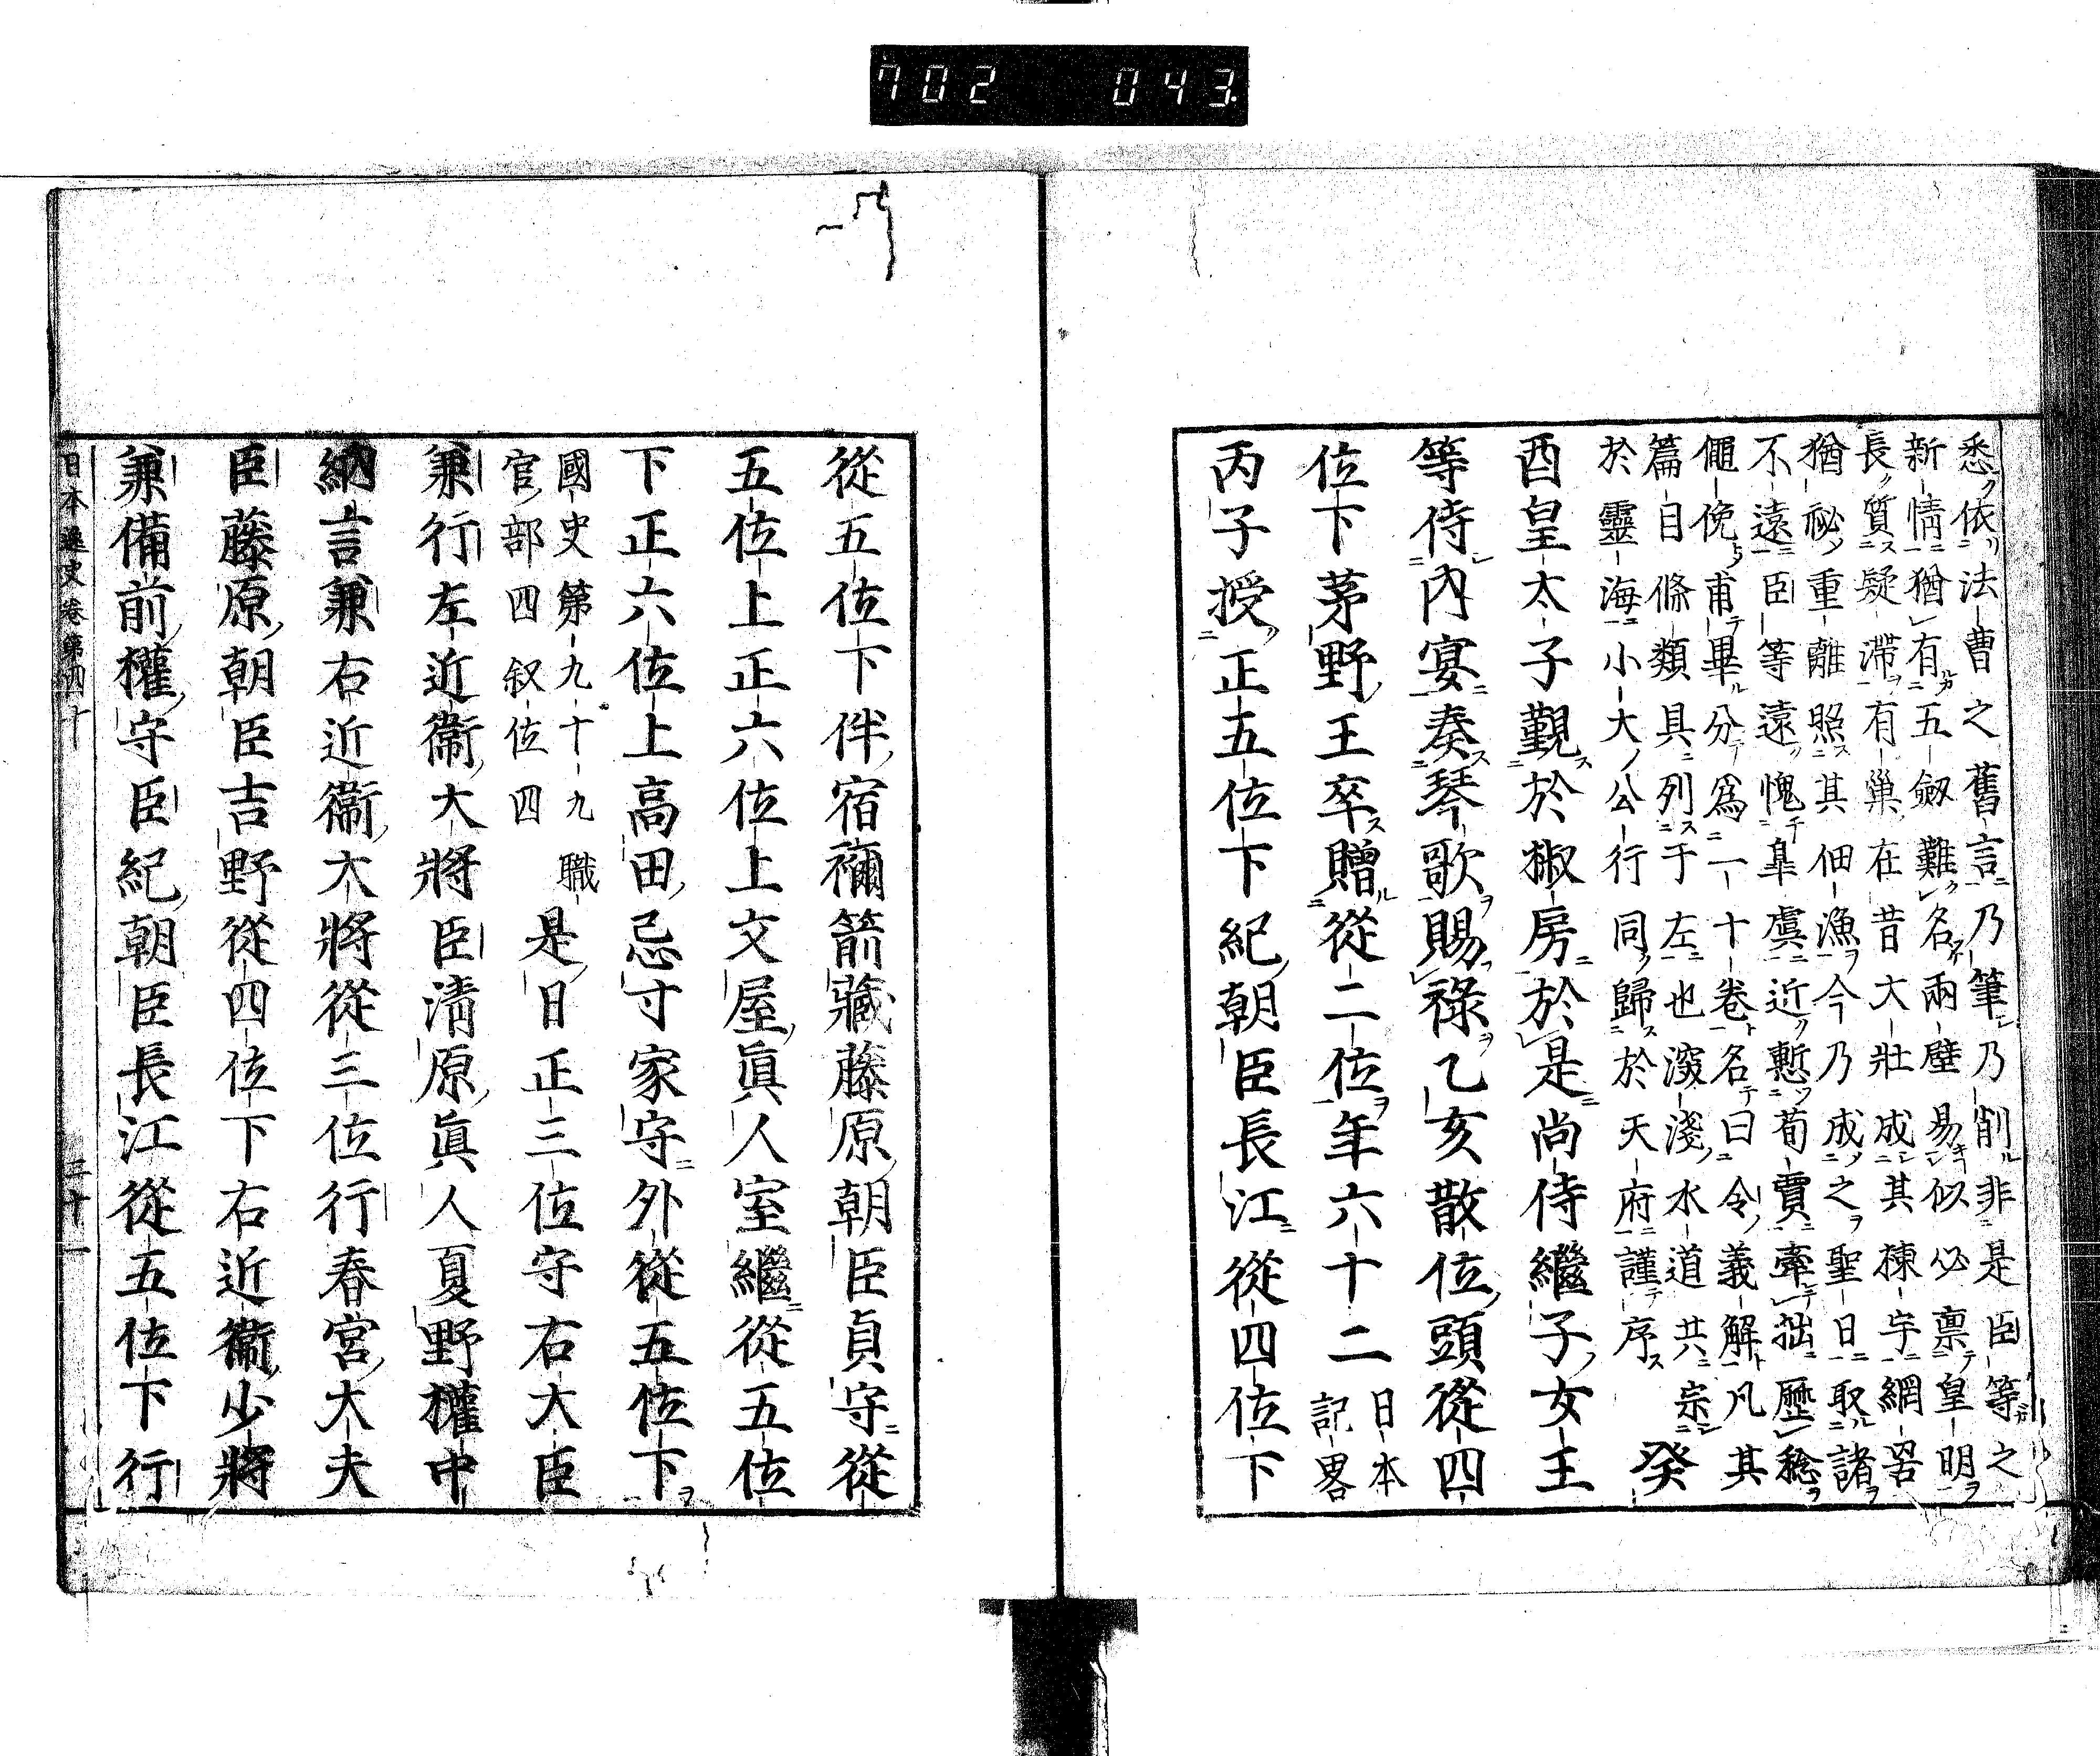 702 043
悉依法曹之舊言乃筆乃削非是臣等之
新情猶有五劔難名兩璧易似必禀皇明
長質疑滯有巢在昔大壯成其棟宇網罟
猶祕重離照其佃漁今乃成之聖日取諸
不遠臣等遠愧皐虞近慙荀賈牽拙歷稔
僶俛甫畢分爲一十卷名曰令義解凡其
篇目條類具列于左也濬淺水道共宗
於靈海小大公行同歸於天府謹序
癸
酉皇太子覲於椒房於是尚侍繼子女王
等侍內宴奏琴歌賜祿乙亥散位頭從四
位下茅野王卒贈從二位年六十二日本
記畧
丙子授正五位下紀朝臣長江從四位下
從五位下伴宿禰箭藏藤原朝臣貞守從
五位上正六位上文屋眞人室繼從五位
下正六位上高田忌寸家守外從五位下
國史第九十九職
官部四叙位四
是日正三位守右大臣
兼行左近衞大將臣清原眞人夏野權中
納言兼右近衞大將從三位行春宮大夫
臣藤原朝臣吉野從四位下右近衞少將
兼備前權守臣紀朝臣長江從五位下行
日本逸史卷第四十
三十一